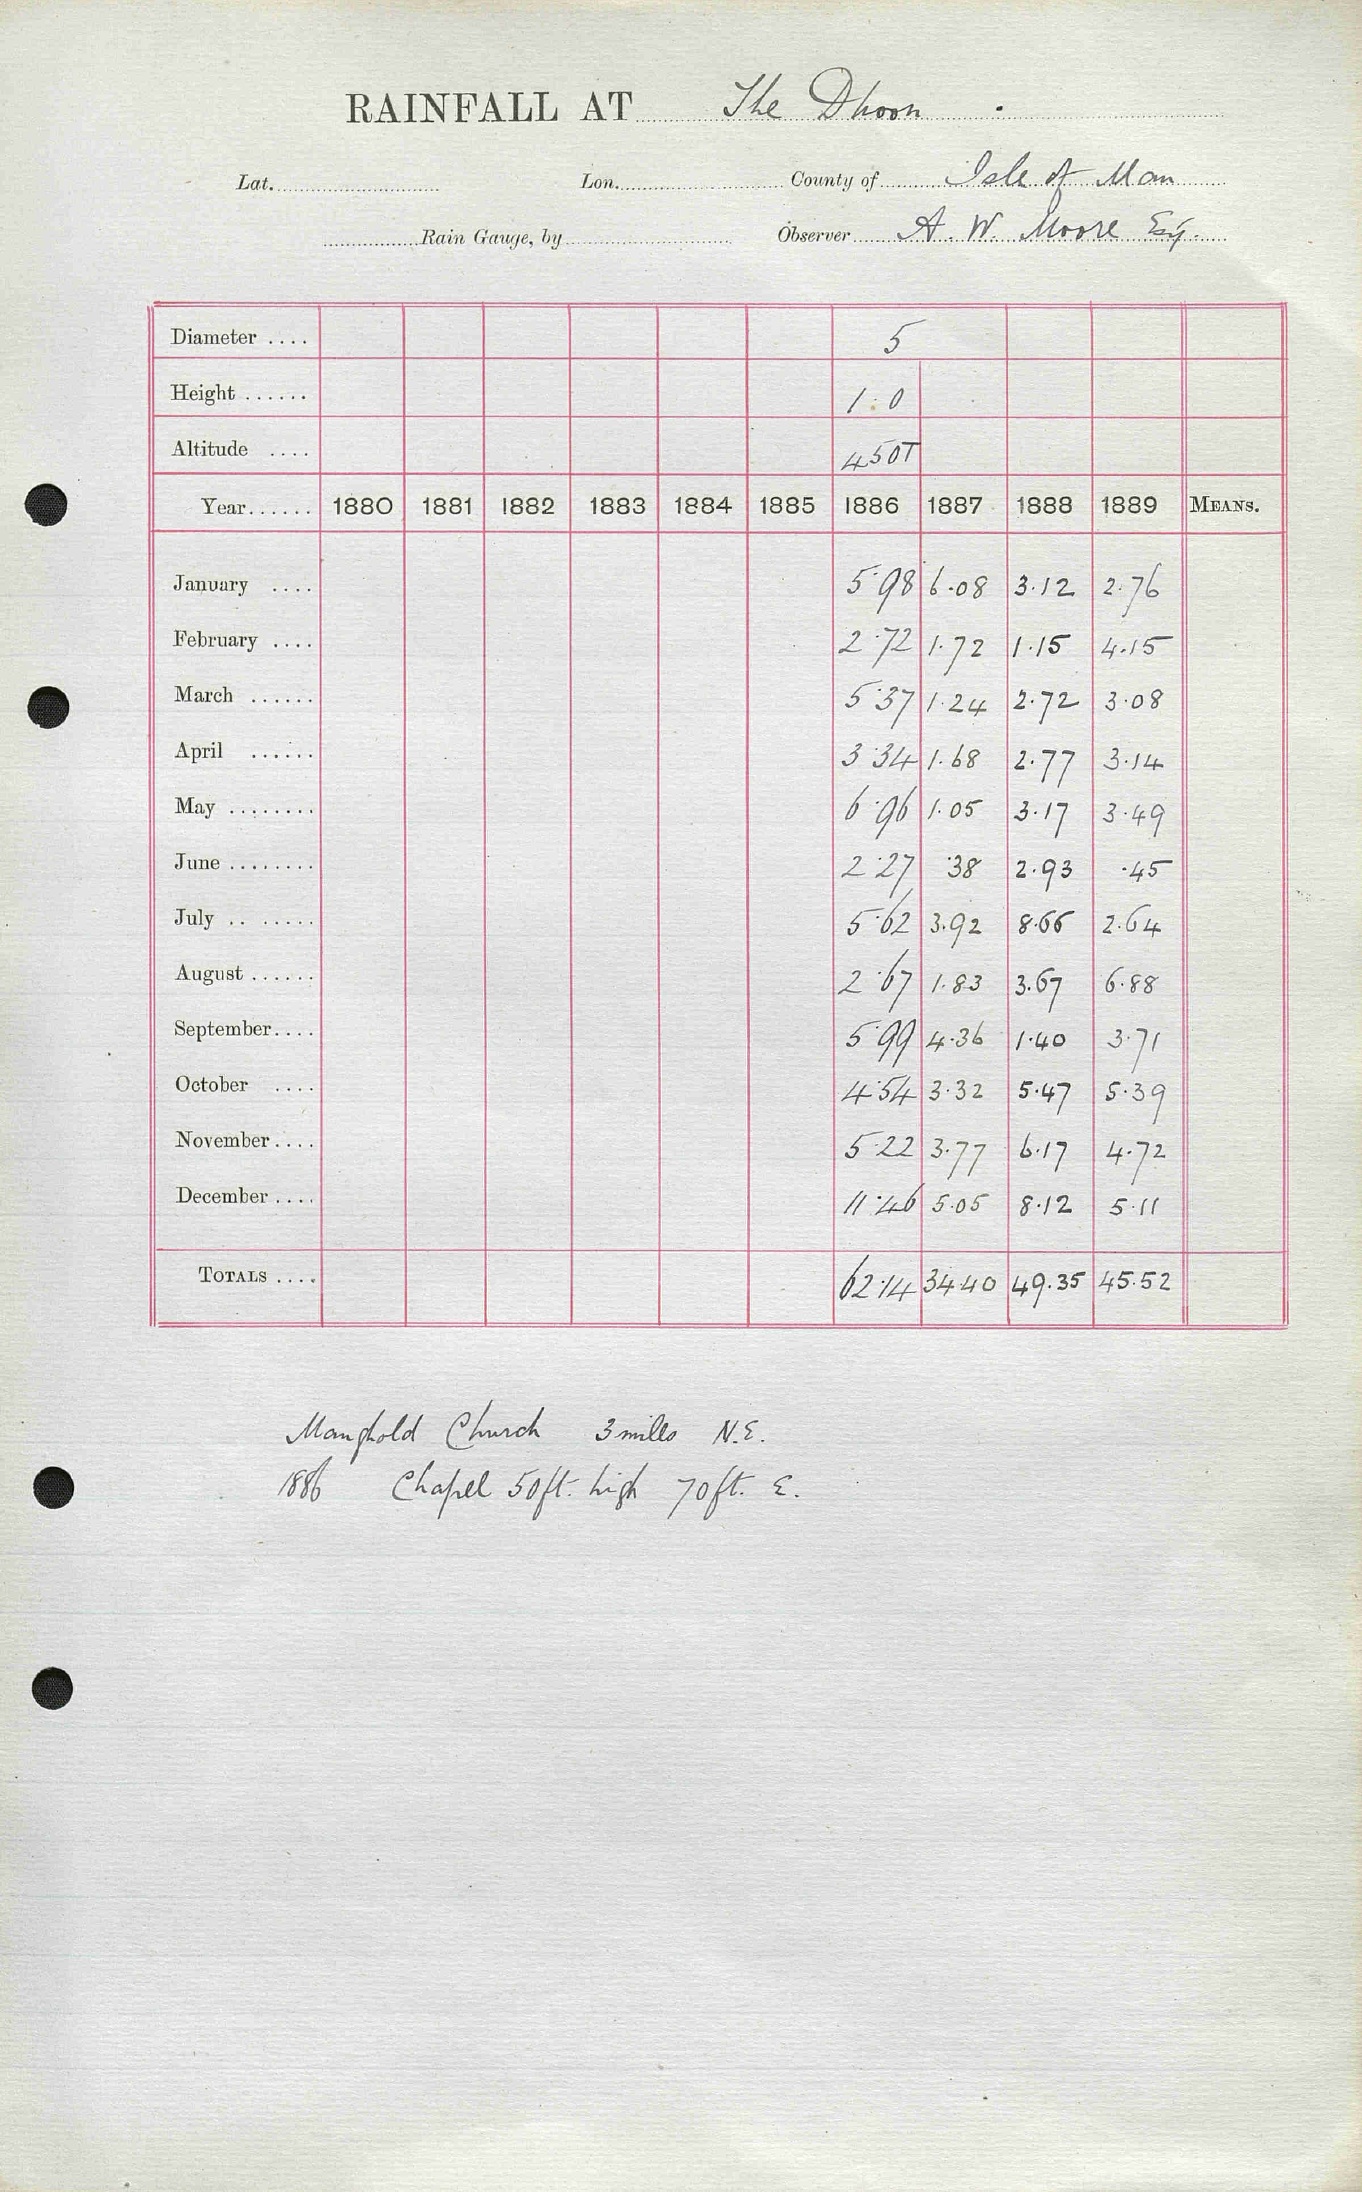 RAINFALL AT The Dhoon .
Lat. Lon. County of Isle of Man
Rain Gauge, by Observer A. W. Moore Esq.
Diameter .... 5
Height ...... 1.0
Altitude .... 450T
Year ...... 1880 1881 1882 1883 1884 1885 1886 1887 1888 1889 MEANS.
January .... 5.98 6.08 3.12 2.76
February .... 2.72 1.72 1.15 4.15
March ...... 5.37 1.24 2.72 3.08
April ...... 3.34 1.68 2.77 3.14
May ........ 6.96 1.05 3.17 3.49
June ........ 2.27 .38 2.93 .45
July .. ...... 5.62 3.92 8.66 2.64
August ...... 2.67 1.83 3.67 6.88
September .... 5.99 4.36 1.40 3.71
October .... 4.54 3.32 5.47 5.39
November .... 5.22 3.77 6.17 4.72
December .... 11.46 5.05 8.12 5.11
TOTALS .... 62.14 34.40 49.35 45.52
Manghold Church 3 miles N.E.
1886 Chapel 50ft. high 70ft. E.